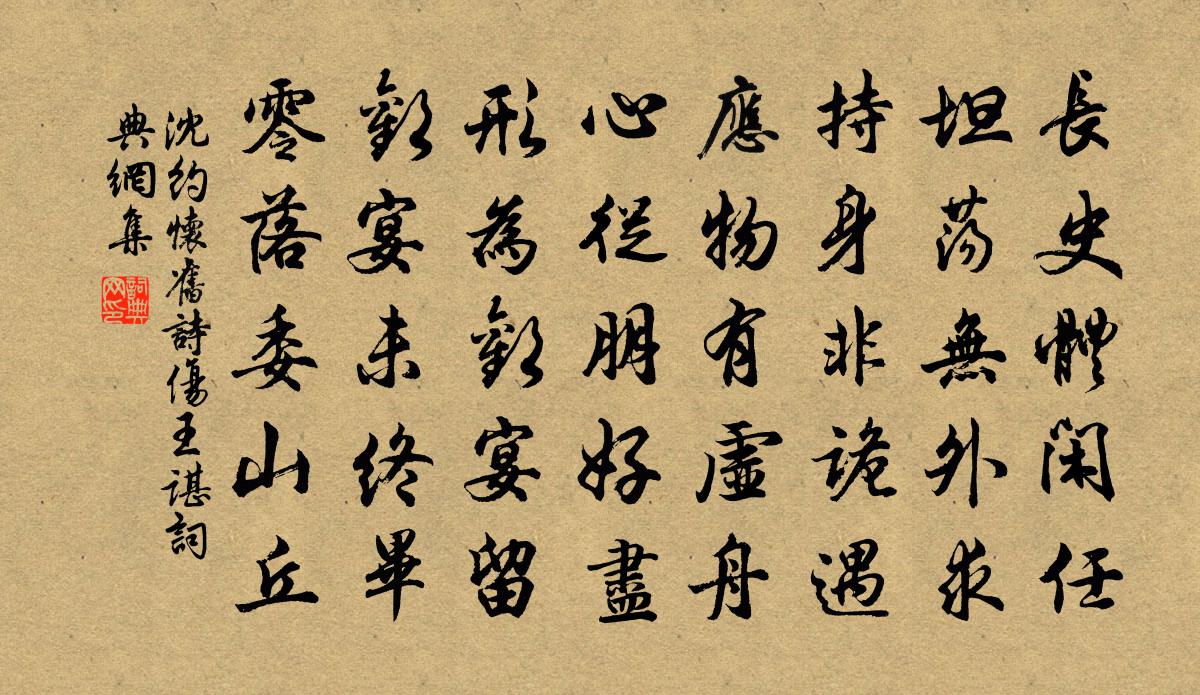 長史體閑任
坦蕩無外求
持身非詭遇
應物有虛舟
心從朋好盡
形為歡宴留
歡宴未終畢
零落委山丘
沈約懷舊詩傷王諶詞
典網集
詞典
网印